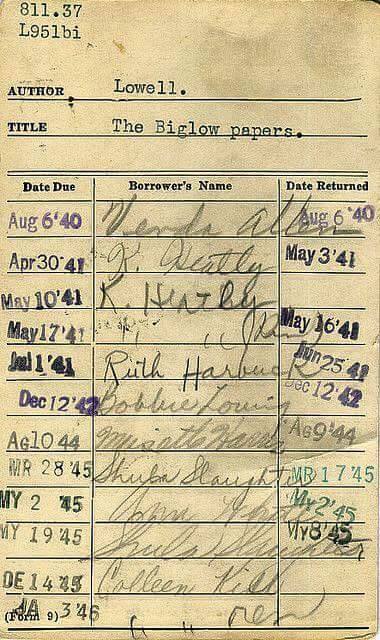 811.37
L951bi
AUTHOR Lowell.
TITLE The Biglow papers.
Date Due Borrower's Name Date Returned
Aug 6'40 Verda Allen Aug 6 '40
Apr 30'41 K. Heatly May 3'41
May 10'41 K. Heatley
May 17'41 " " May 16'41
Jul 1'41 Ruth Harbuck Jun 25 41
Dec 12'42 Bobbie Loving Dec 12'42
Ag 10 44 Ag 9'44
MR 28'45 Sheila Slaughter MR 17'45
MY 2 '45 My 2'45
MY 19 '45 Sheila Slaughter My 8'45
DE 14 45 Colleen
JA 3'46 " " ren
(Form 9)